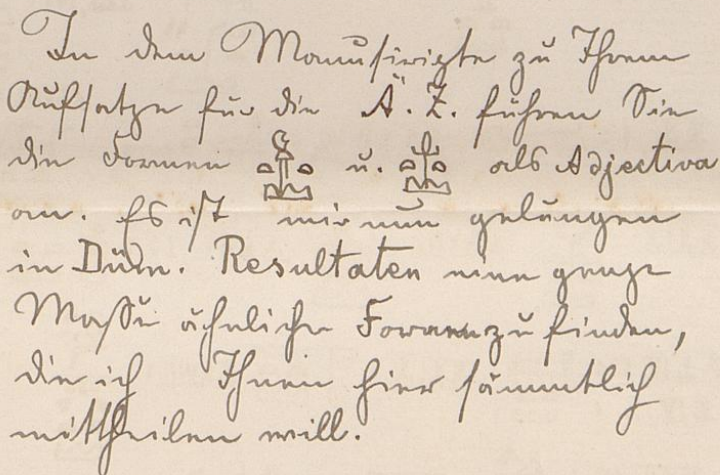 In dem Manuscripte zu Ihrem
Aufsatze für die Ä. Z. führen Sie
die Formen u. als Adjectiva
an. Es ist mir nun gelungen
in Düm. Resultaten eine ganze
Masse ähnliche Formen zu finden,
die ich Ihnen hier sämmtlich
mittheilen will.